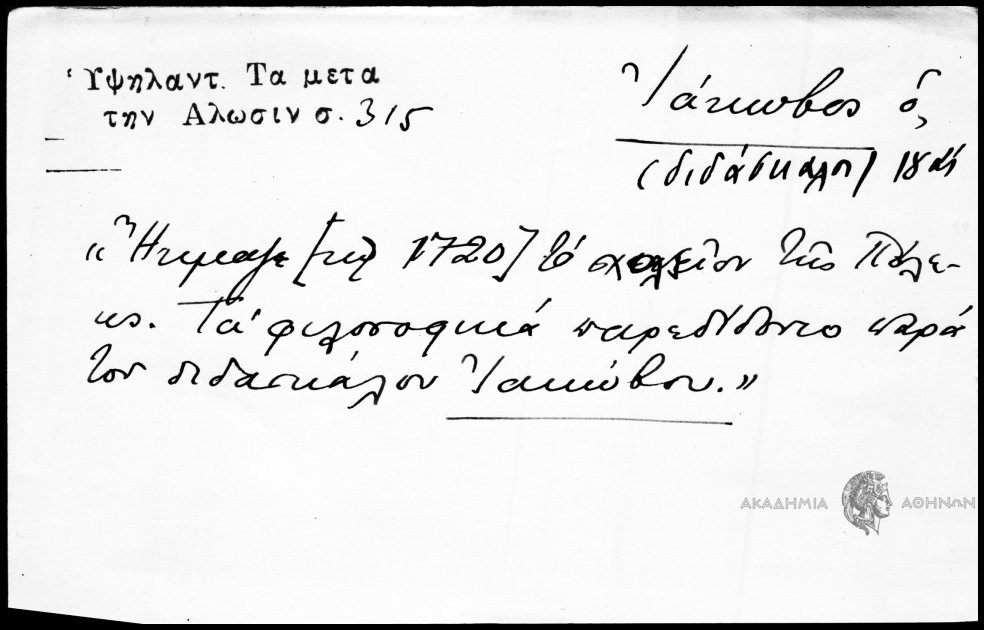 Ὑψηλαντ. Τα μετα
την Αλωσιν σ. 315
Ἰάκωβος ὁ,
(διδάσκαλος) 18
« Ἤκμαζε [τῷ 1720] τὸ σχολεῖον τῆς Πόλε-
ως. Τὰ φιλοσοφικὰ παρεδίδοντο παρὰ
τοῦ διδασκάλου Ἰακώβου. »
ΑΚΑΔΗΜΙΑ ΑΘΗΝΩΝ